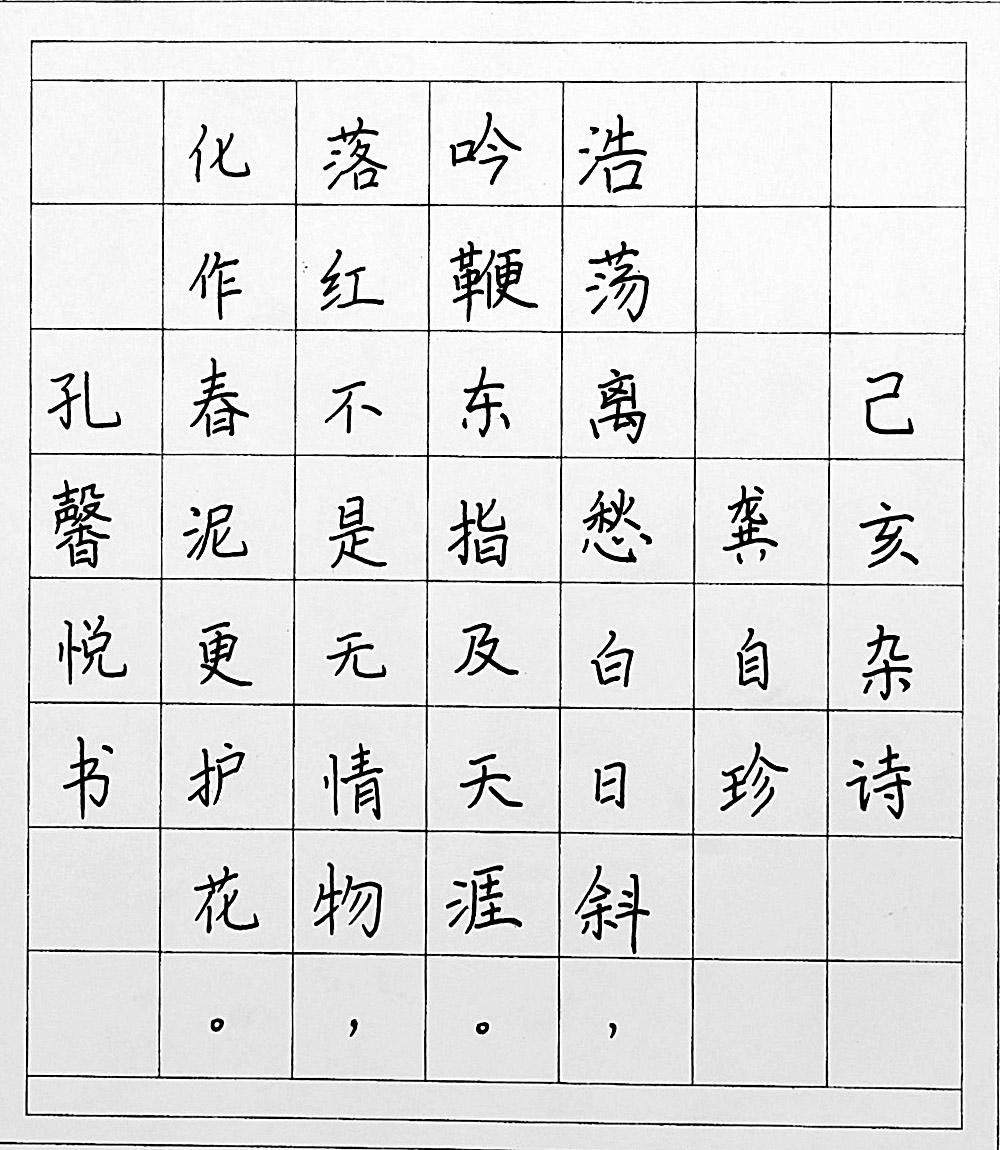 己亥杂诗
龚自珍
浩荡离愁白日斜，
吟鞭东指及天涯。
落红不是无情物，
化作春泥更护花。
孔馨悦书